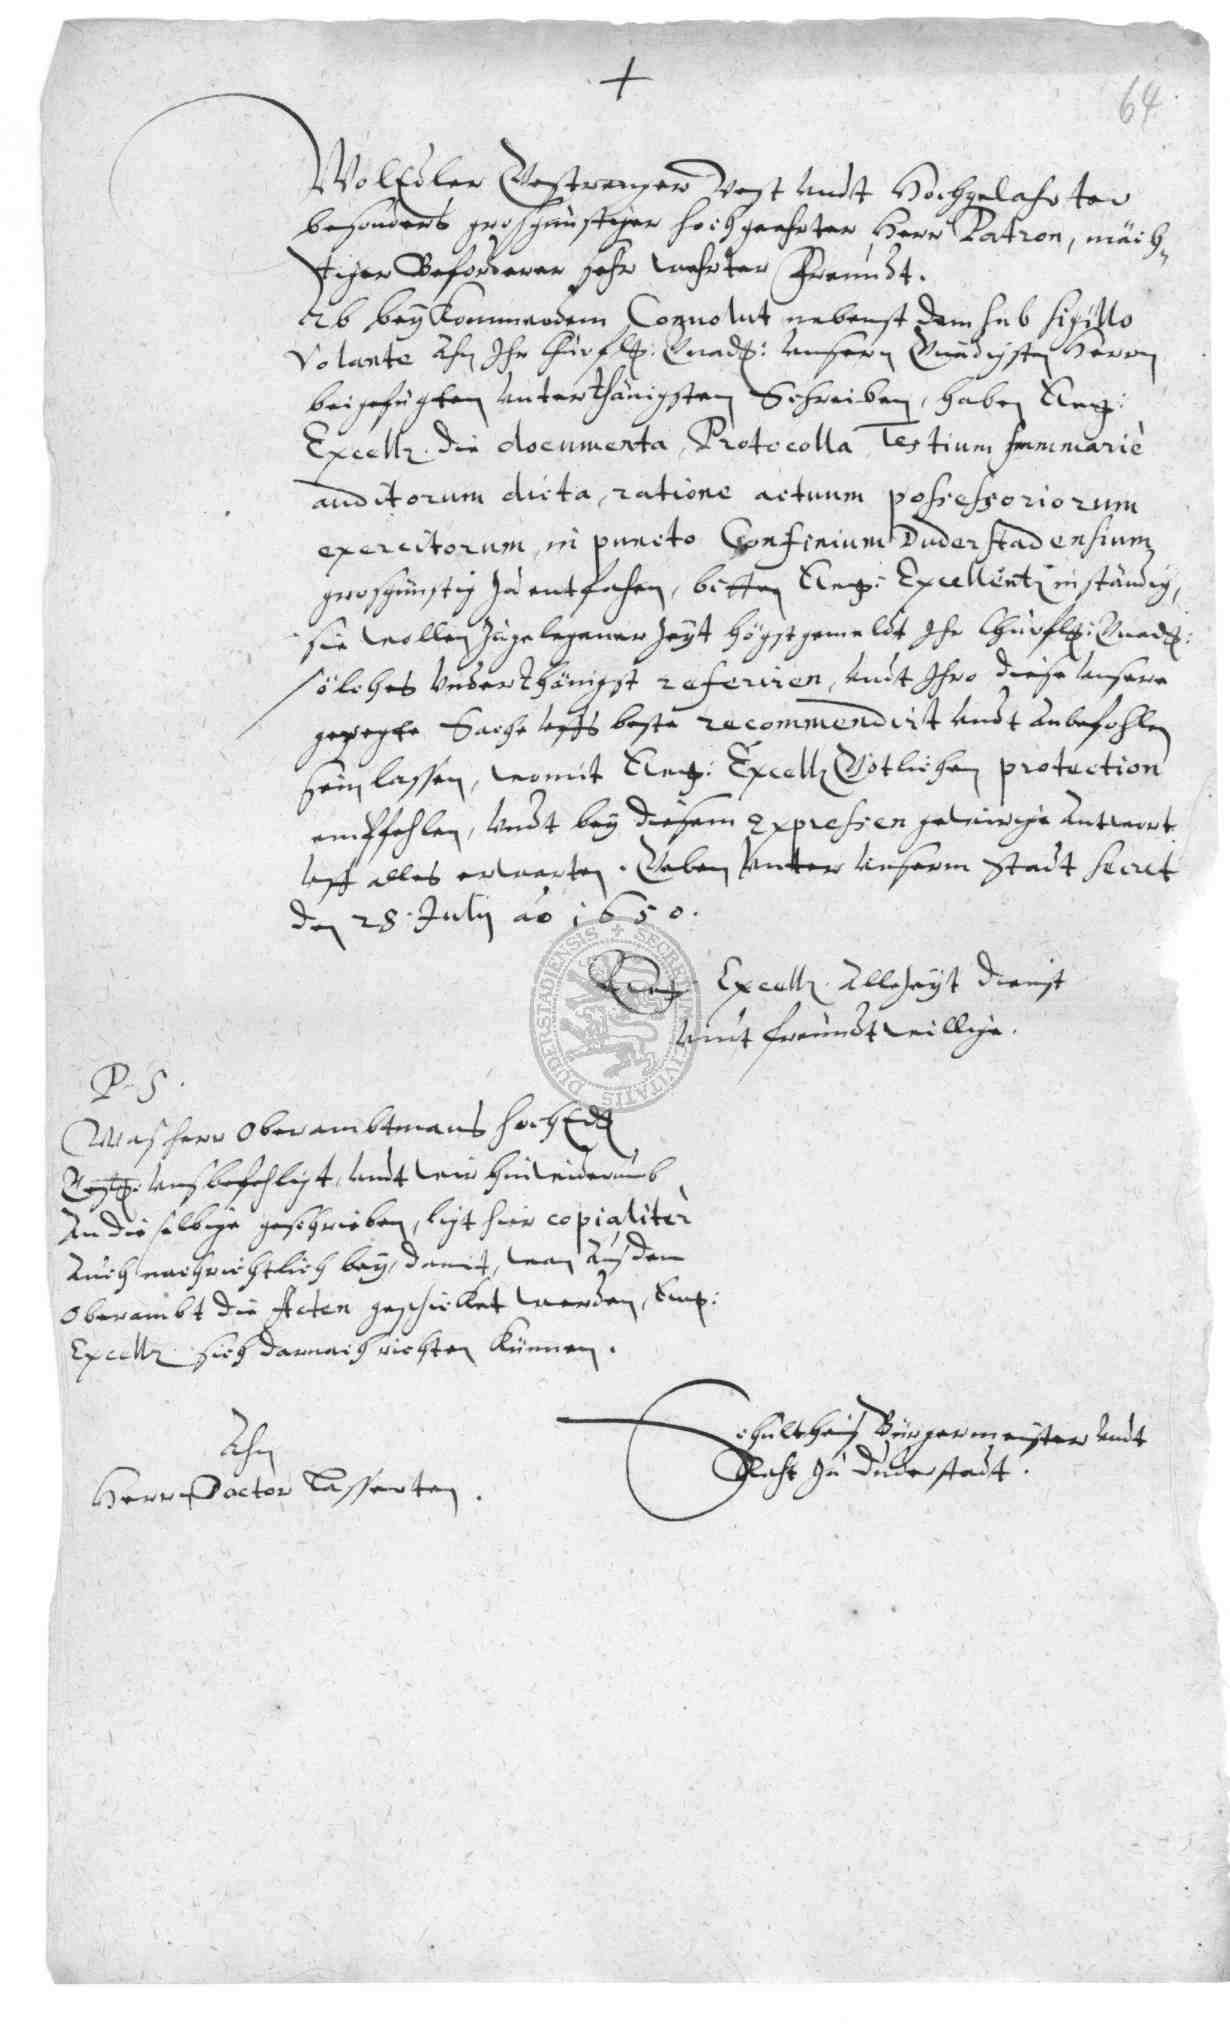 +
64
WolEdler Gestrenger Vest undt Hochgelahrter
besonders grosgünstiger hochgeehrter Herr Patron, mäch-
tiger Beforderer sehr wehrter Freundt.
Ab beykommendem Convolut nebenst dem sub sigillo
volante Ahn Ihr Churfl: Gnad: unsern Gnädigsten Herrn
beigefügten unterthänigsten Schreiben, haben Ew:
Excell. die documenta, Protocolla Testium summarie
auditorum dicta, ratione actuum possessoriorum
exercitorum, in puncto Confinium Duderstadensium
grosgünstig zu entfahen, bitten Ew: Excellentz inständig,
sie wollen zugelegener zeyt högstgemeldt Ihr Churfl: Gnad:
sölches underthänigst referiren, undt Ihro diese unsere
gerechte Sache uffs beste recommendirt undt anbefohlen
sein lassen, womit Ew: Excell. Götlichen protection
empfehlen, undt bey diesem expressen gewirige Antwort
uff alles erwarten. Geben unter unserm Stadt Secret
den 28. July ao 1650.
Ew: Excell. Allezeyt dienst
undt freundtwillige.
SECRETUM CIVITATIS DUDERSTADIENSIS
P. S.
Was herr Oberambtmans hochEdl
Gestr: uns befehligt, undt wir hinwiderumb
An dieselbige geschrieben, ligt hier copialiter
Auch nachrichtlich bey, damit, wan Aus dem
Oberambt die Acten geschicket werden, Ew:
Excell. sich darnach richten künnen.
Ahn
Herr Doctor Lasserten.
Schultheis Bürgermeister undt
Raht zu Duderstadt.